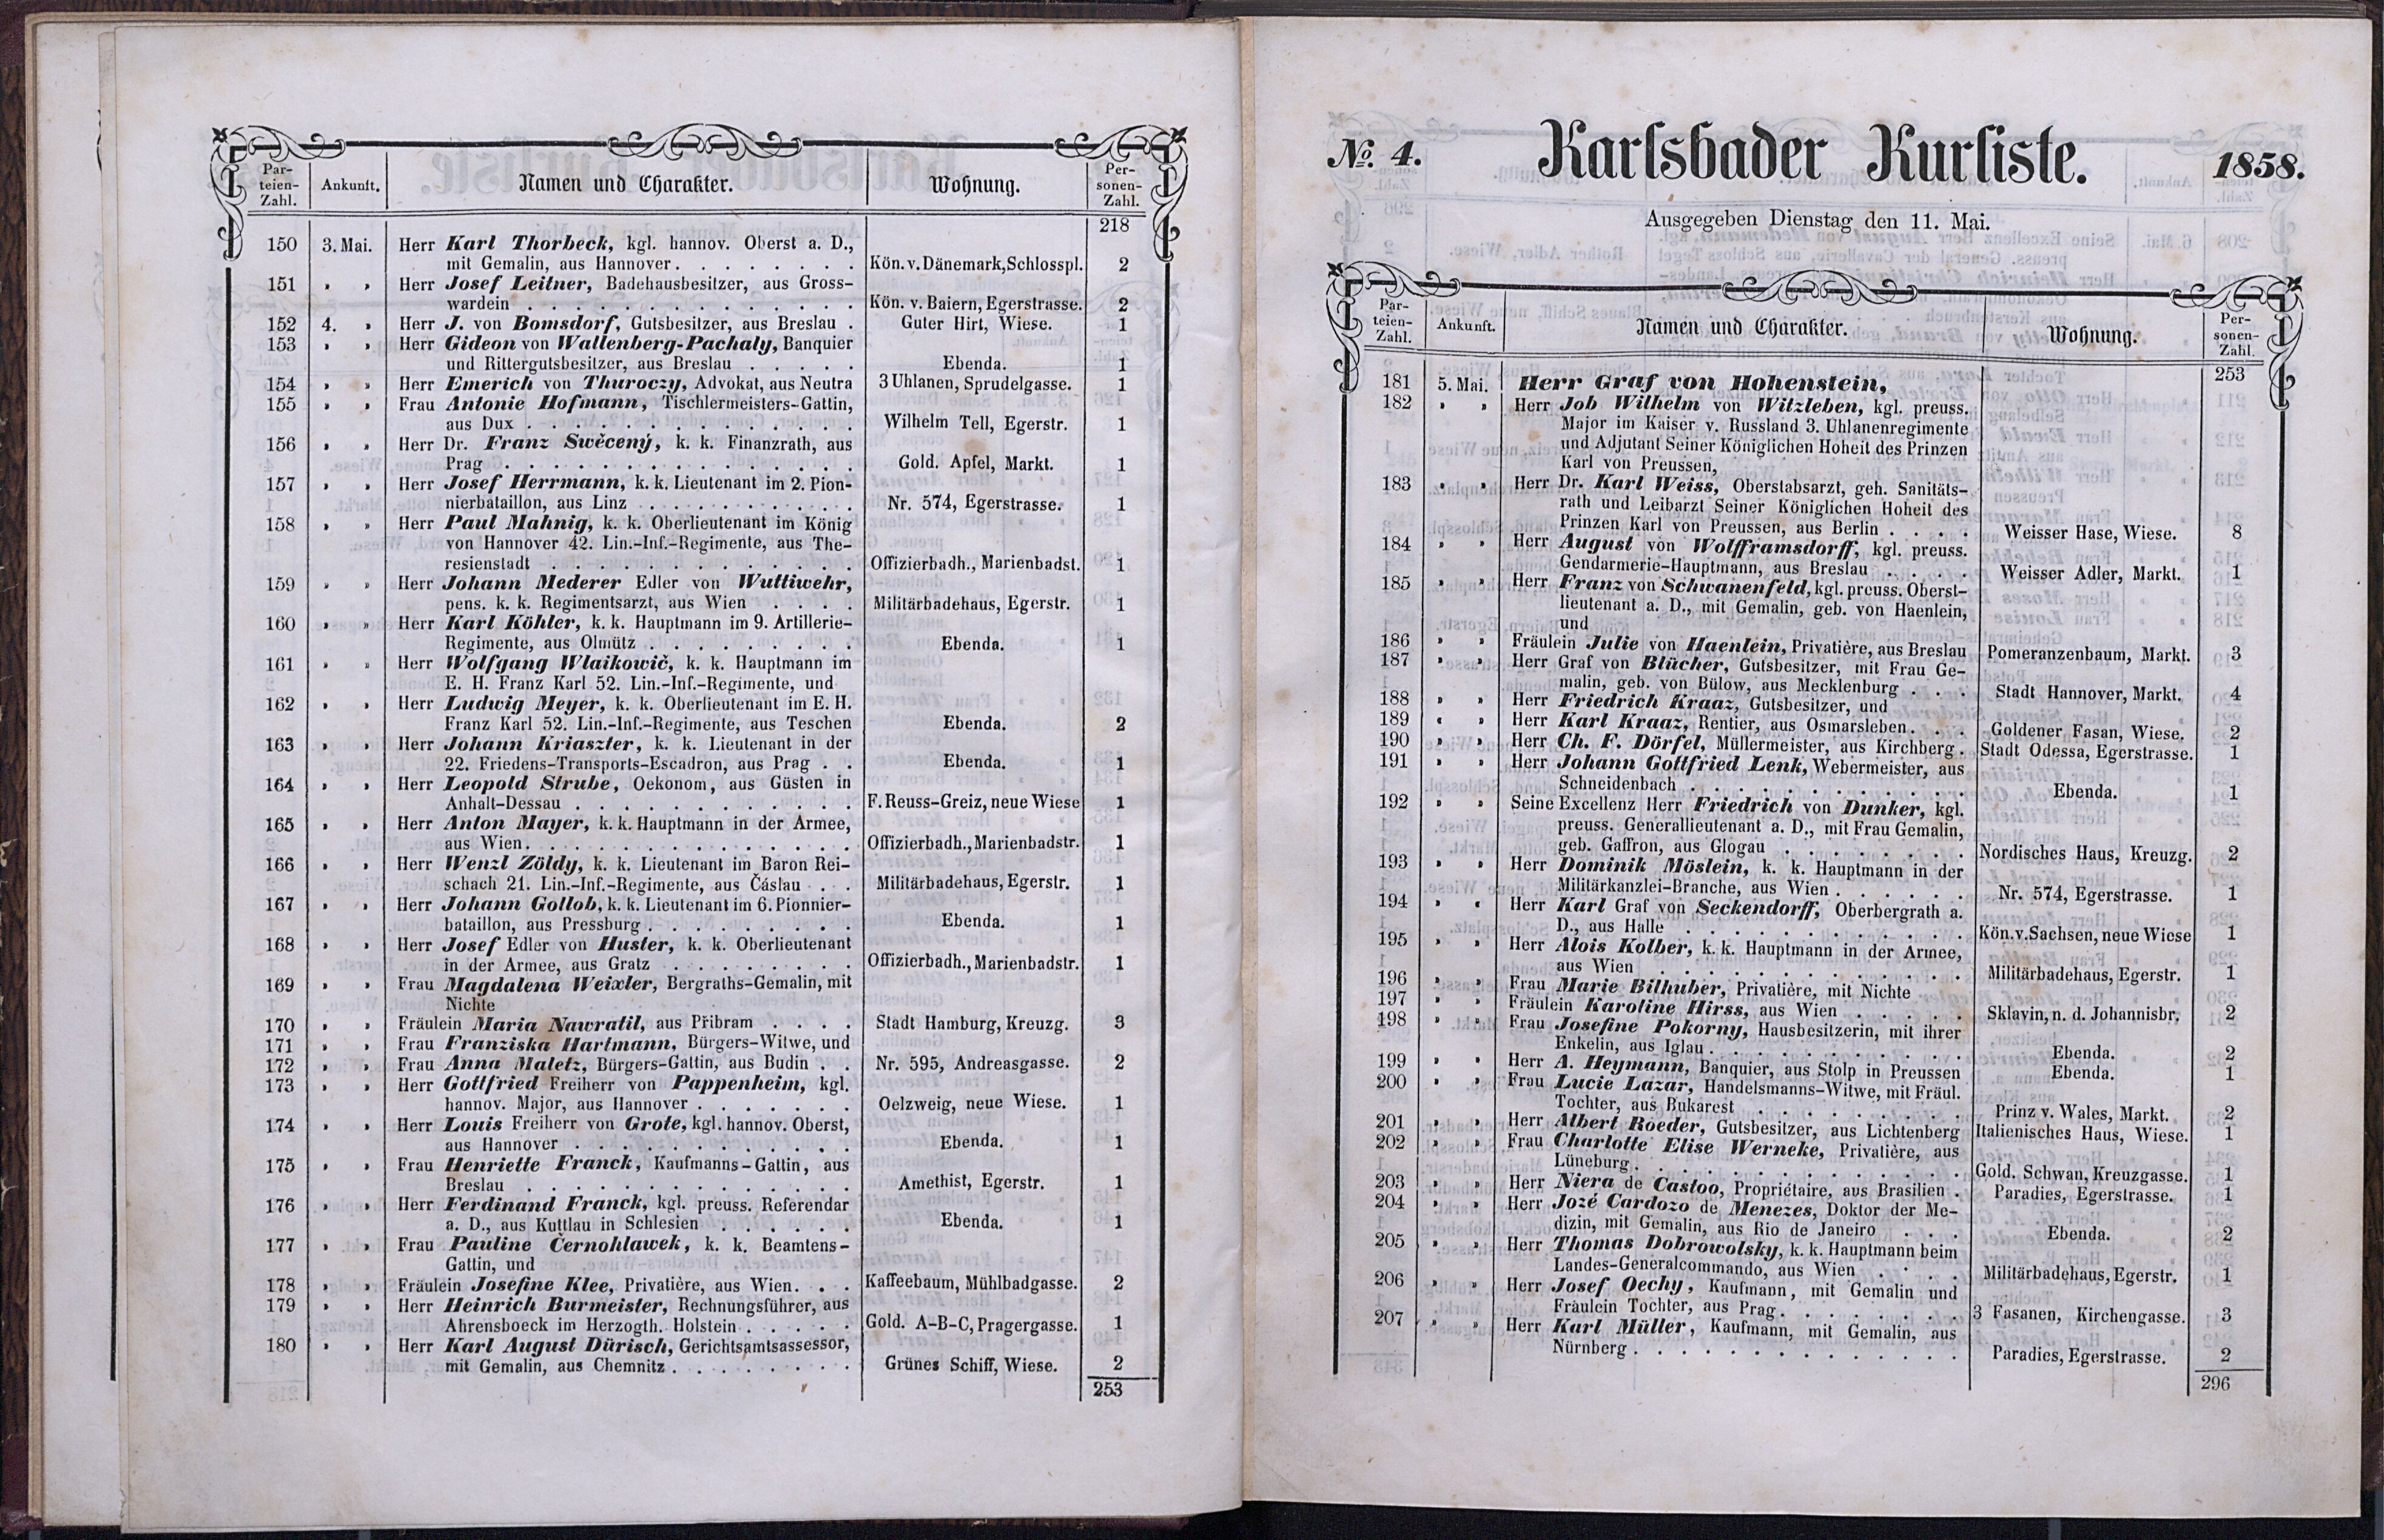 Par-
teien-
Zahl.
Ankunft.
Namen und Charakter.
Wohnung.
Per-
sonen-
Zahl.
218
150 3. Mai. Herr Karl Thorbeck, kgl. hannov. Oberst a. D.,
mit Gemalin, aus Hannover . . . . . . . . Kön. v. Dänemark, Schlosspl. 2
151 „ „ Herr Josef Leitner, Badehausbesitzer, aus Gross-
wardein . . . . . . . . . . . . . . Kön. v. Baiern, Egerstrasse. 2
152 4. „ Herr J. von Bomsdorf, Gutsbesitzer, aus Breslau . Guter Hirt, Wiese. 1
153 „ „ Herr Gideon von Wallenberg-Pachaly, Banquier
und Rittergutsbesitzer, aus Breslau . . . . . Ebenda. 1
154 „ „ Herr Emerich von Thuroczy, Advokat, aus Neutra 3 Uhlanen, Sprudelgasse. 1
155 „ „ Frau Antonie Hofmann, Tischlermeisters-Gattin,
aus Dux . . . . . . . . . . . . . . Wilhelm Tell, Egerstr. 1
156 „ „ Herr Dr. Franz Swěcený, k. k. Finanzrath, aus
Prag . . . . . . . . . . . . . . . Gold. Apfel, Markt. 1
157 „ „ Herr Josef Herrmann, k. k. Lieutenant im 2. Pion-
nierbataillon, aus Linz . . . . . . . . . . Nr. 574, Egerstrasse. 1
158 „ „ Herr Paul Mahnig, k. k. Oberlieutenant im König
von Hannover 42. Lin.-Inf.-Regimente, aus The-
resienstadt . . . . . . . . . . . . . Offizierbadh., Marienbadst. 1
159 „ „ Herr Johann Mederer Edler von Wuttiwehr,
pens. k. k. Regimentsarzt, aus Wien . . . . Militärbadehaus, Egerstr. 1
160 „ „ Herr Karl Köhler, k. k. Hauptmann im 9. Artillerie-
Regimente, aus Olmütz . . . . . . . . . Ebenda. 1
161 „ „ Herr Wolfgang Wlaikowič, k. k. Hauptmann im
E. H. Franz Karl 52. Lin.-Inf.-Regimente, und
162 „ „ Herr Ludwig Meyer, k. k. Oberlieutenant im E. H.
Franz Karl 52. Lin.-Inf.-Regimente, aus Teschen Ebenda. 2
163 „ „ Herr Johann Kriaszter, k. k. Lieutenant in der
22. Friedens-Transports-Escadron, aus Prag . . Ebenda. 1
164 „ „ Herr Leopold Strube, Oekonom, aus Güsten in
Anhalt-Dessau . . . . . . . . . . . . F. Reuss-Greiz, neue Wiese 1
165 „ „ Herr Anton Mayer, k. k. Hauptmann in der Armee,
aus Wien. . . . . . . . . . . . . . Offizierbadh., Marienbadstr. 1
166 „ „ Herr Wenzl Zöldy, k. k. Lieutenant im Baron Rei-
schach 21. Lin.-Inf.-Regimente, aus Čáslau . . . Militärbadehaus, Egerstr. 1
167 „ „ Herr Johann Gollob, k. k. Lieutenant im 6. Pionnier-
bataillon, aus Pressburg . . . . . . . . . Ebenda. 1
168 „ „ Herr Josef Edler von Huster, k. k. Oberlieutenant
in der Armee, aus Gratz . . . . . . . . Offizierbadh., Marienbadstr. 1
169 „ „ Frau Magdalena Weixler, Bergraths-Gemalin, mit
Nichte
170 „ „ Fräulein Maria Nawratil, aus Přibram . . . . Stadt Hamburg, Kreuzg. 3
171 „ „ Frau Franziska Hartmann, Bürgers-Witwe, und
172 „ „ Frau Anna Maletz, Bürgers-Gattin, aus Budin . . Nr. 595, Andreasgasse. 2
173 „ „ Herr Gottfried Freiherr von Pappenheim, kgl.
hannov. Major, aus Hannover . . . . . . . Oelzweig, neue Wiese. 1
174 „ „ Herr Louis Freiherr von Grote, kgl. hannov. Oberst,
aus Hannover . . . . . . . . . . . . Ebenda. 1
175 „ „ Frau Henriette Franck, Kaufmanns-Gattin, aus
Breslau . . . . . . . . . . . . . . Amethist, Egerstr. 1
176 „ „ Herr Ferdinand Franck, kgl. preuss. Referendar
a. D., aus Kuttlau in Schlesien . . . . . . Ebenda. 1
177 „ „ Frau Pauline Černohlawek, k. k. Beamtens-
Gattin, und
178 „ „ Fräulein Josefine Klee, Privatière, aus Wien. . . Kaffeebaum, Mühlbadgasse. 2
179 „ „ Herr Heinrich Burmeister, Rechnungsführer, aus
Ahrensboeck im Herzogth. Holstein . . . . . Gold. A-B-C, Pragergasse. 1
180 „ „ Herr Karl August Dürisch, Gerichtsamtsassessor,
mit Gemalin, aus Chemnitz . . . . . . . . Grünes Schiff, Wiese. 2
253
No. 4. Karlsbader Kurliste. 1858.
Ausgegeben Dienstag den 11. Mai.
Par-
teien-
Zahl.
Ankunft.
Namen und Charakter.
Wohnung.
Per-
sonen-
Zahl.
253
181 5. Mai. Herr Graf von Hohenstein,
182 „ „ Herr Job Wilhelm von Witzleben, kgl. preuss.
Major im Kaiser v. Russland 3. Uhlanenregimente
und Adjutant Seiner Königlichen Hoheit des Prinzen
Karl von Preussen,
183 „ „ Herr Dr. Karl Weiss, Oberstabsarzt, geh. Sanitäts-
rath und Leibarzt Seiner Königlichen Hoheit des
Prinzen Karl von Preussen, aus Berlin . . . . Weisser Hase, Wiese. 8
184 „ „ Herr August von Wolfframsdorff, kgl. preuss.
Gendarmerie-Hauptmann, aus Breslau . . . . Weisser Adler, Markt. 1
185 „ „ Herr Franz von Schwanenfeld, kgl. preuss. Oberst-
lieutenant a. D., mit Gemalin, geb. von Haenlein,
und
186 „ „ Fräulein Julie von Haenlein, Privatière, aus Breslau Pomeranzenbaum, Markt. 3
187 „ „ Herr Graf von Blücher, Gutsbesitzer, mit Frau Ge-
malin, geb. von Bülow, aus Mecklenburg . . . Stadt Hannover, Markt. 4
188 „ „ Herr Friedrich Kraaz, Gutsbesitzer, und
189 „ „ Herr Karl Kraaz, Rentier, aus Osmarsleben. . . Goldener Fasan, Wiese. 2
190 „ „ Herr Ch. F. Dörfel, Müllermeister, aus Kirchberg . Stadt Odessa, Egerstrasse. 1
191 „ „ Herr Johann Gottfried Lenk, Webermeister, aus
Schneidenbach . . . . . . . . . . . . Ebenda. 1
192 „ „ Seine Excellenz Herr Friedrich von Dunker, kgl.
preuss. Generallieutenant a. D., mit Frau Gemalin,
geb. Gaffron, aus Glogau . . . . . . . . Nordisches Haus, Kreuzg. 2
193 „ „ Herr Dominik Möslein, k. k. Hauptmann in der
Militärkanzlei-Branche, aus Wien . . . . . . Nr. 574, Egerstrasse. 1
194 „ „ Herr Karl Graf von Seckendorff, Oberbergrath a.
D., aus Halle . . . . . . . . . . . . Kön. v. Sachsen, neue Wiese 1
195 „ „ Herr Alois Kolber, k. k. Hauptmann in der Armee,
aus Wien . . . . . . . . . . . . . Militärbadehaus, Egerstr. 1
196 „ „ Frau Marie Bilhuber, Privatière, mit Nichte
197 „ „ Fräulein Karoline Hirss, aus Wien . . . . . Sklavin, n. d. Johannisbr. 2
198 „ „ Frau Josefine Pokorny, Hausbesitzerin, mit ihrer
Enkelin, aus Iglau . . . . . . . . . . . Ebenda. 2
199 „ „ Herr A. Heymann, Banquier, aus Stolp in Preussen Ebenda. 1
200 „ „ Frau Lucie Lazar, Handelsmanns-Witwe, mit Fräul.
Tochter, aus Bukarest . . . . . . . . . Prinz v. Wales, Markt. 2
201 „ „ Herr Albert Roeder, Gutsbesitzer, aus Lichtenberg Italienisches Haus, Wiese. 1
202 „ „ Frau Charlotte Elise Werneke, Privatière, aus
Lüneburg . . . . . . . . . . . . . Gold. Schwan, Kreuzgasse. 1
203 „ „ Herr Niera de Castoo, Propriétaire, aus Brasilien . Paradies, Egerstrasse. 1
204 „ „ Herr Jozé Cardozo de Menezes, Doktor der Me-
dizin, mit Gemalin, aus Rio de Janeiro . . . Ebenda. 2
205 „ „ Herr Thomas Dobrowolsky, k. k. Hauptmann beim
Landes-Generalcommando, aus Wien . . . . Militärbadehaus, Egerstr. 1
206 „ „ Herr Josef Oechy, Kaufmann, mit Gemalin und
Fräulein Tochter, aus Prag . . . . . . . . 3 Fasanen, Kirchengasse. 3
207 „ „ Herr Karl Müller, Kaufmann, mit Gemalin, aus
Nürnberg . . . . . . . . . . . . . Paradies, Egerstrasse. 2
296